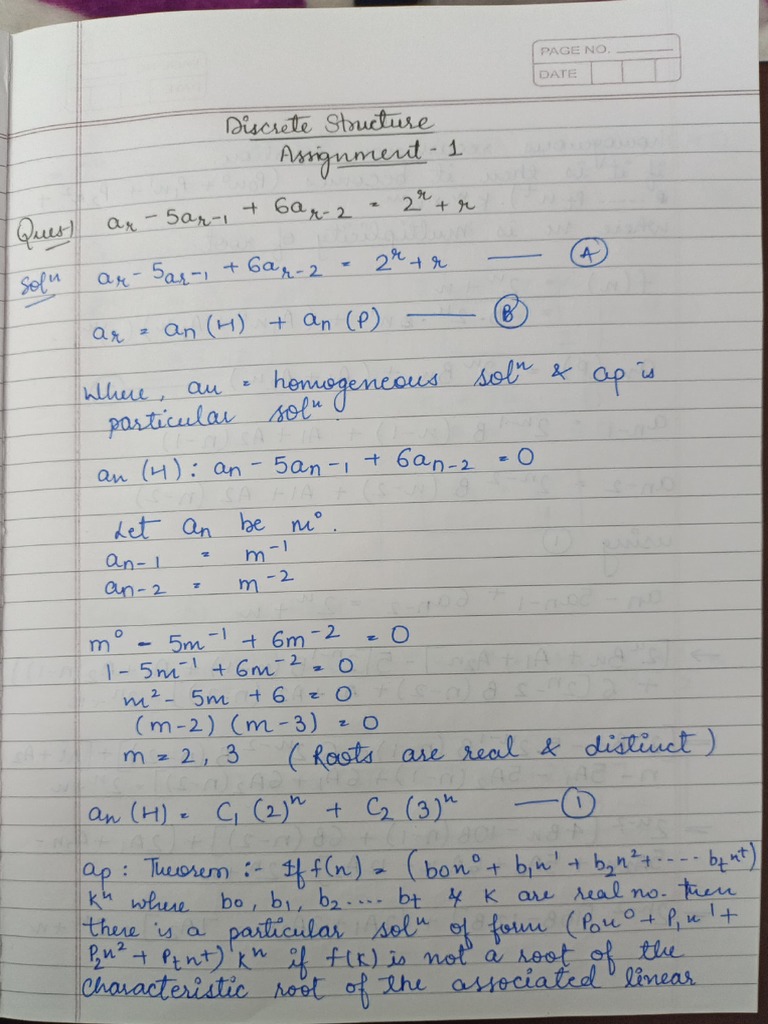 PAGE NO.
DATE
Discrete Structure
Assignment - 1
Ques1 aᵣ - 5aᵣ₋₁ + 6aᵣ₋₂ = 2ʳ + r
Solⁿ aᵣ - 5aᵣ₋₁ + 6aᵣ₋₂ = 2ʳ + r — (A)
aᵣ = aₙ (H) + aₙ (P) — (B)
Where, aH = homogeneous solⁿ & ap is
particular solⁿ.
aₙ (H) : aₙ - 5aₙ₋₁ + 6aₙ₋₂ = 0
Let aₙ be m⁰.
aₙ₋₁ = m⁻¹
aₙ₋₂ = m⁻²
m⁰ - 5m⁻¹ + 6m⁻² = 0
1 - 5m⁻¹ + 6m⁻² = 0
m² - 5m + 6 = 0
(m-2) (m-3) = 0
m = 2, 3 (Roots are real & distinct)
aₙ (H) = C₁ (2)ⁿ + C₂ (3)ⁿ — (1)
ap : Theorem :- If f(n) = (b0n⁰ + b₁n¹ + b₂n² + ..... btnᵗ)
Kⁿ where b0, b₁, b₂ .... bt & K are real no. then
there is a particular solⁿ of form (P₀n⁰ + P₁n¹ +
P₂n² + Ptnt) Kⁿ if f(K) is not a root of the
characteristic root of the associated linear